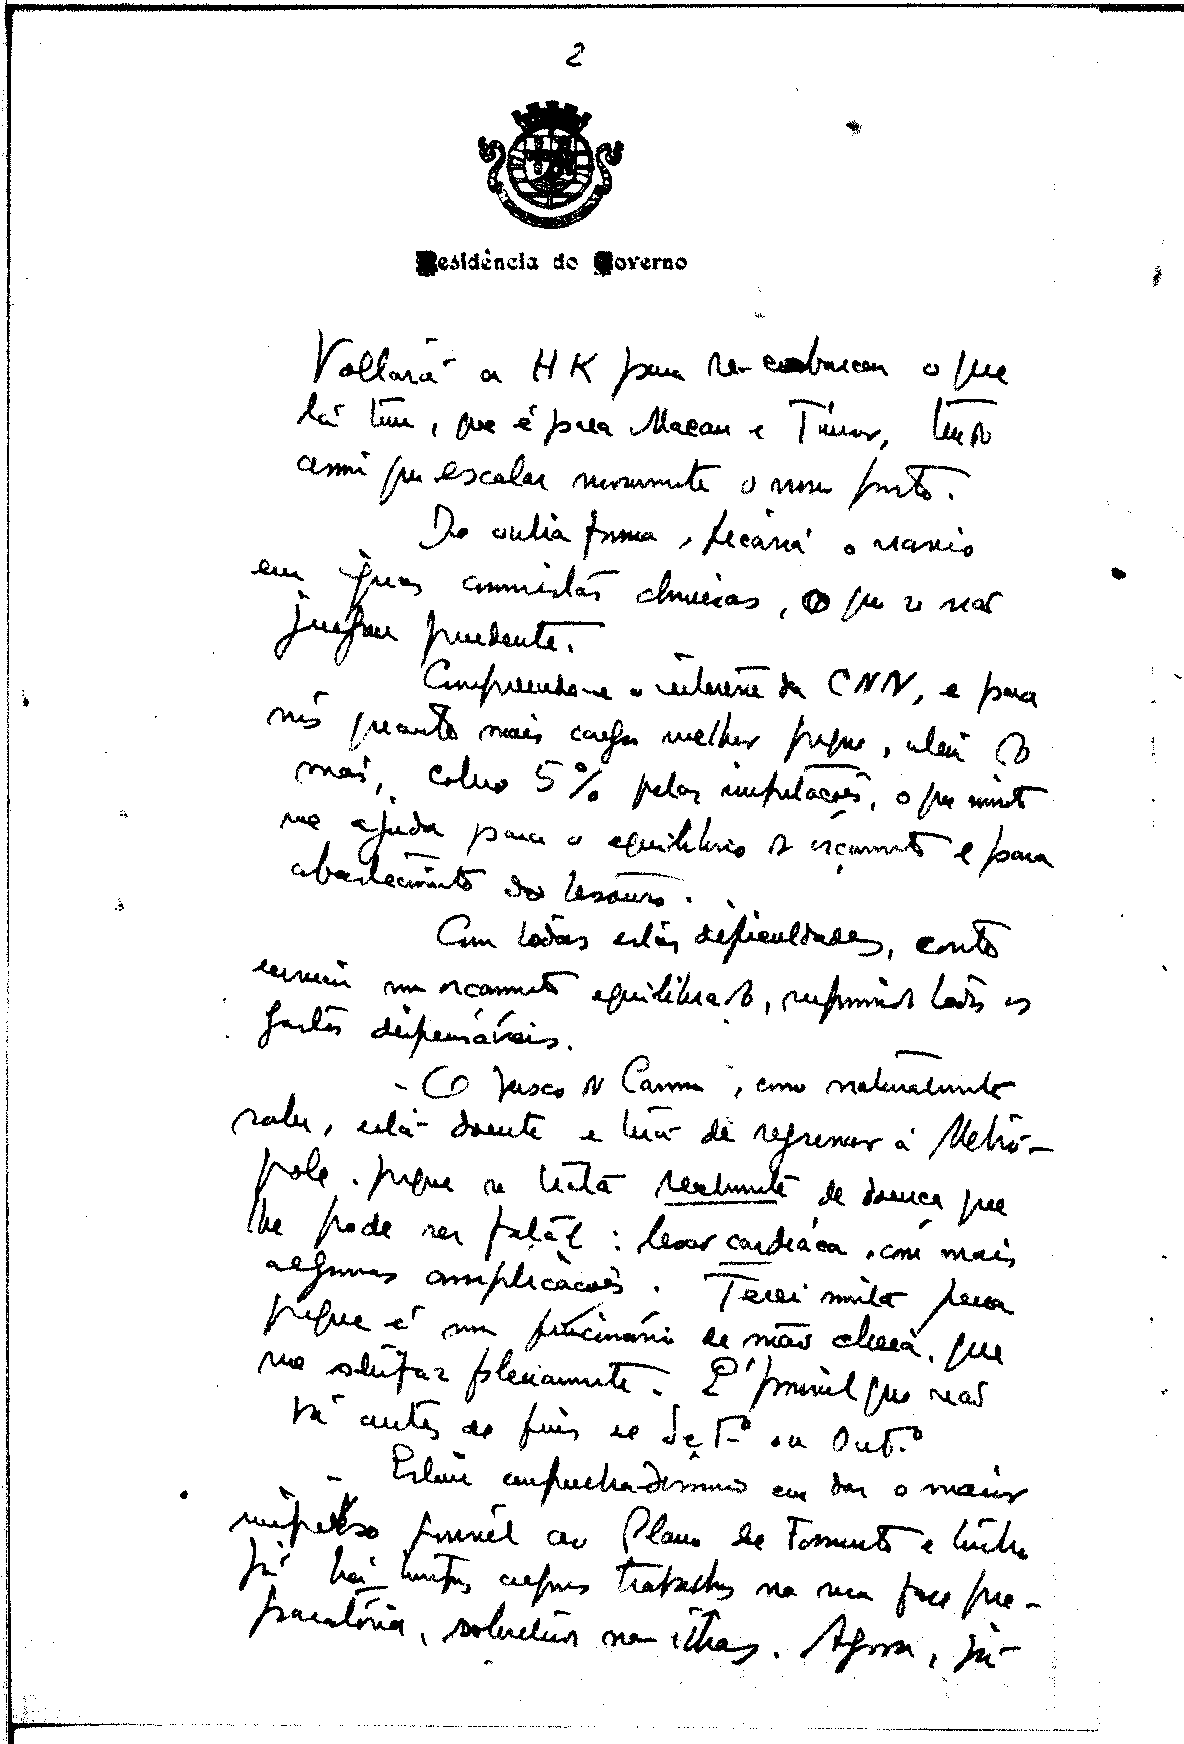 2
Residência do Governo
Voltará a HK para re-embarcar o que
lá tem, que é para Macau e Timor, tendo
assim que escalar novamente o nosso porto.
De outra forma, ficará o navio
em águas comunistas chinesas, o que se não
julgou prudente.
Compreende-se o interesse da CNN, e para
nós quanto mais carga melhor porque, além do
mais, cobro 5% pelas importações, o que muito
me ajuda para o equilíbrio do orçamento e para
abastecimento do tesouro.
Com todas estas dificuldades, conto
um orçamento equilibrado, suprimindo todos os
gastos dispensáveis.
- O Vasco da Gama, como naturalmente
sabe, está doente e terá de regressar à Metró-
pole, porque se trata realmente de doença que
lhe pode ser fatal: lesão cardíaca, com mais
algumas complicações. Terei muita pena
porque é um funcionário de mão cheia, que
me satisfaz plenamente. É possível que não
vá antes de fins de Set.º ou Out.º
- Estou empenhadíssimo em dar o maior
impulso possível ao Plano de Fomento e tinha
já há tempos alguns trabalhos na sua fase pre-
paratória, sobretudo nas ilhas. Agora, já